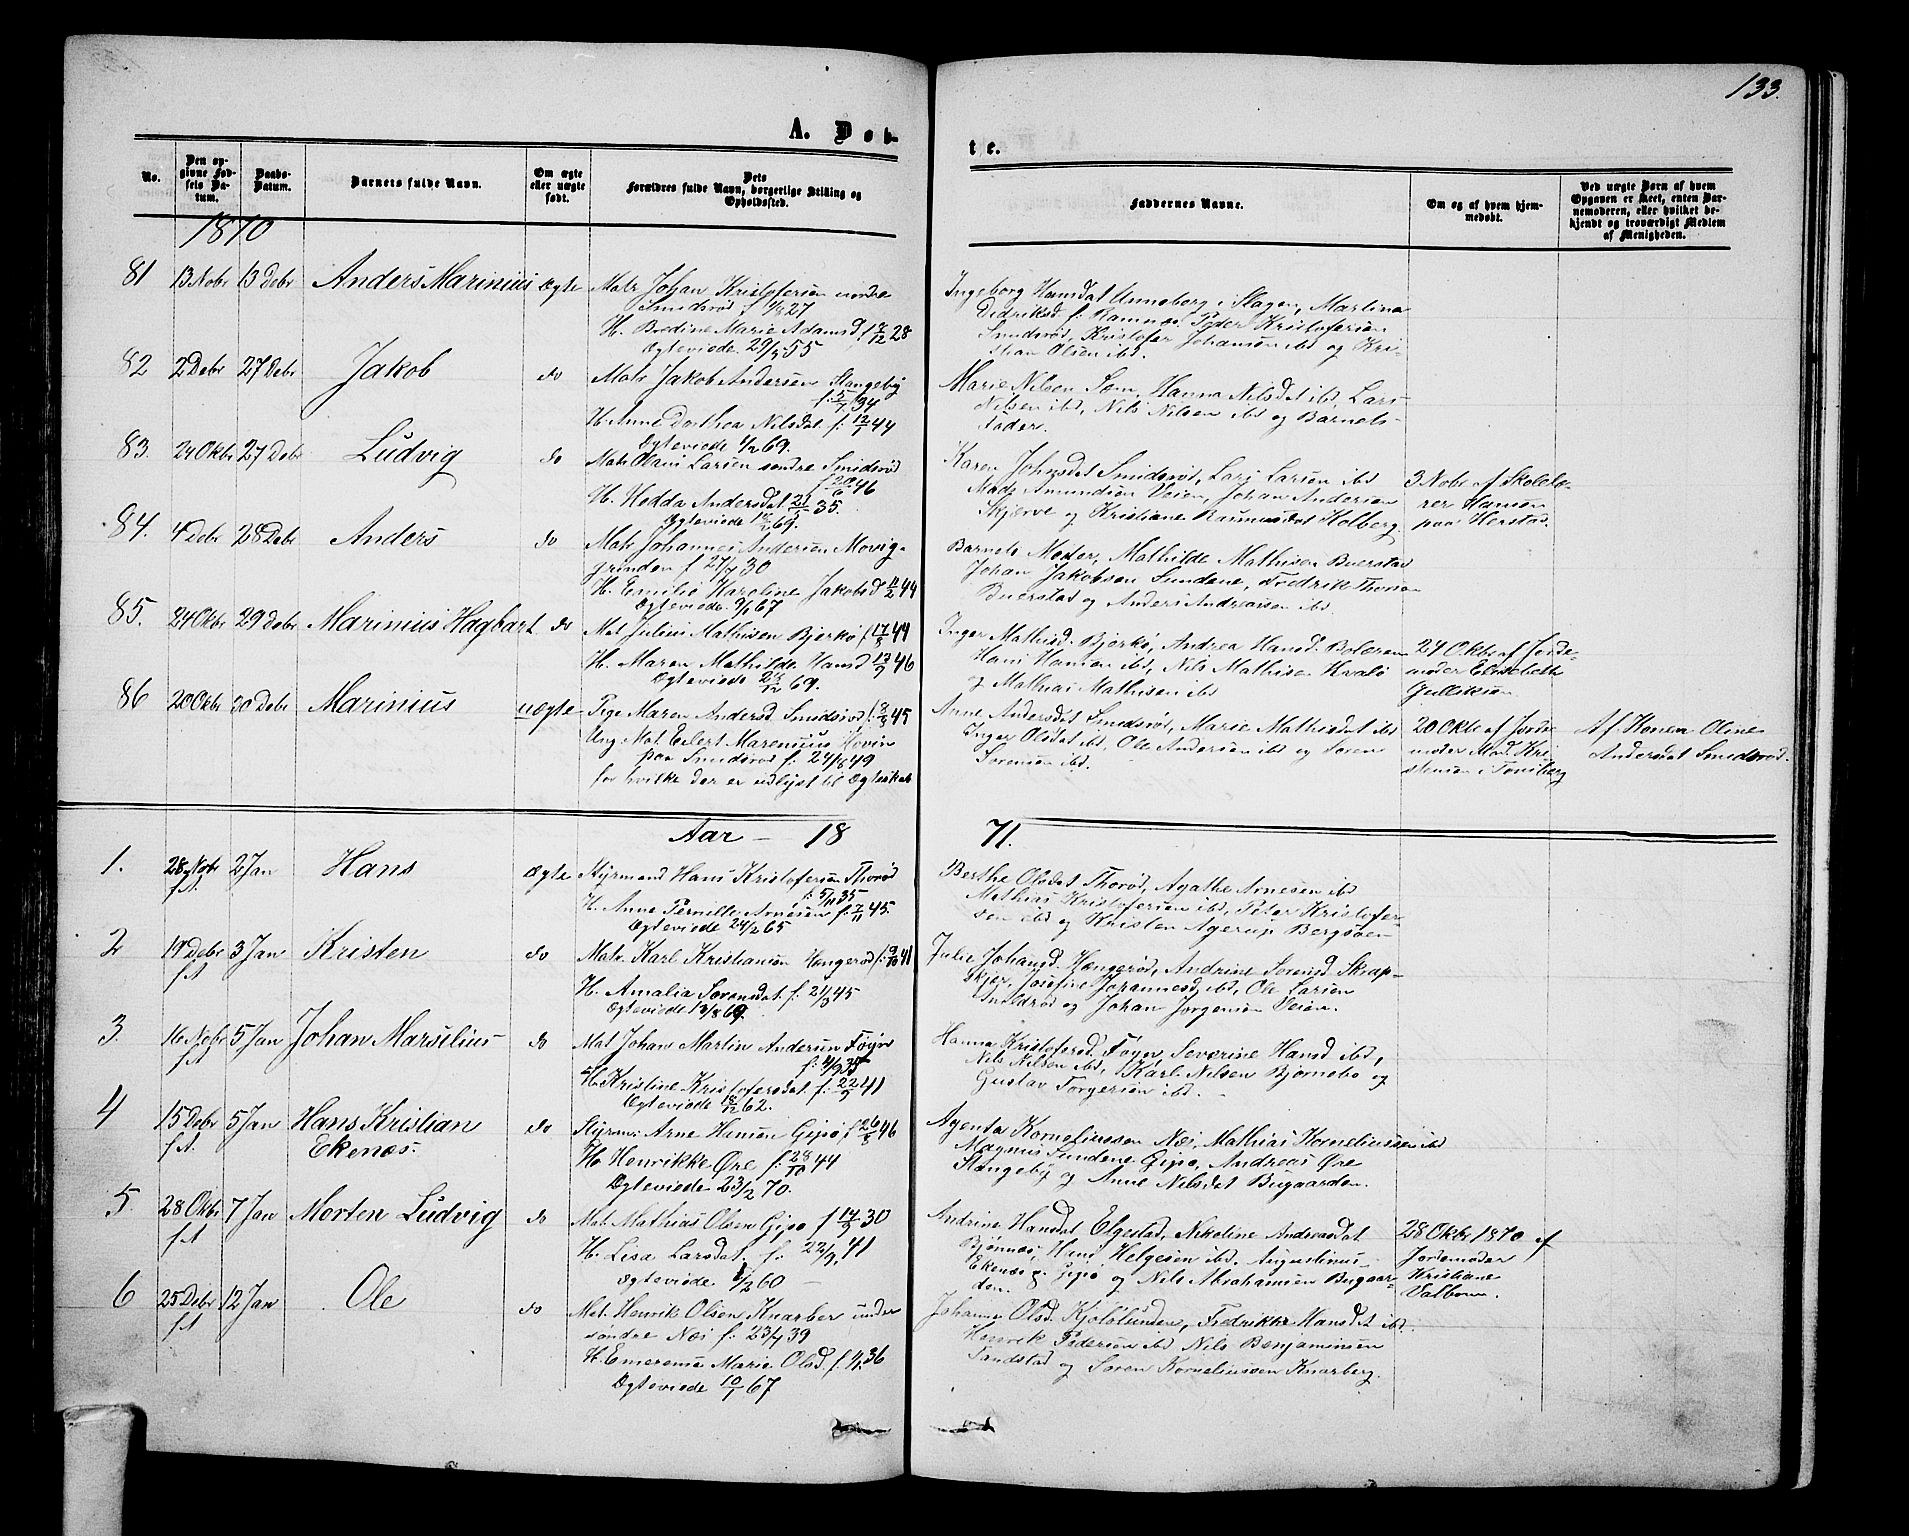 133.
A. Døb-
te.
No.
Den op-
givne Fød-
sels Da-
tum.
Daabs-
Datum.
Barnets fulde Navn.
Om ægte
eller uægte
født.
Dets
Forældres fulde Navn, borgerlige Stilling og
Opholdssted.
Faddernes Navne.
Om og af hvem hjem-
medøbt.
Ved uægte Børn af hvem
Opgaven er skeet, enten Bar-
nemoderen, eller hvilket be-
kjendt og troværdigt Medlem
af Menigheden.
1870
81 13 Nobr 13 Debr Anders Marinius ægte
Matr Johan Kristofersen nordre
Smidsrød f 27
H. Bredine Marie Adamsd f 28
Ægteviede 29/ 55
Ingeborg Hansdat Unneborg i Slagen, Martina
Didriksd f: Ramnæs Peder Kristofersen
Smidsrød, Kristofer Johansen ibd og Kri-
stian Olsen ibd.
82 2 Debr 27 Debr Jakob do
Matr Jakob Andersen Stangeby
f: 5/7 34
H. Anne Dorthea Nilsdat f. 12/1 44
Ægteviede 69.
Marie Nilsen Sem, Hanna Nilsdat ibd, Lars
Nilsen ibd, Nils Nilsen ibd og Barnets
Fader.
83. 24 Okbr 27 Debr Ludvig do
Matr Olaus Larsen søndre Smidsrød
f 20/6 46
H. Hedda Andersdat 35.
Ægteviede 69.
Karen Johnsdat Smidsrød, Lars Larsen ibd
Mads Amundsen Veien, Johan Andersen
Skjerve og Kristiane Rasmusdat Kolberg
3 Nobr af Skolelæ-
rer Hansen
paa Herstad.
84. 4 Debr 28 Debr Anders do
Matr Johannes Andersen Movig-
grinden f 27/ 30
H. Emilie Karoline Jakobsd 11/2 44
Ægteviede 9/ 67
Barnets Moder, Mathilde Mathisen Buerstad
Johan Jakobsen Sundene, Fredrik Thorsen
Buerstad og Anders Andreasen ibd.
85. 24 Okbr 29 Debr Marinius Hagbart do
Mat Julius Mathisen Bjerkø f 17/8 44
H. Maren Mathilde Hansd 46
Ægteviede 28/12 69.
Inger Mathisd. Bjerkø, Andrea Hansd. Bolæren
Hans Hansen ibd, Nils Mathisen Hvalø
og Mathias Mathisen ibd
24 Okbr af Jorde-
moder Elisabeth
Gulliksen
86 20 Okbr 30 Debr Marinius uægte
Pige Maren Andersd Smidsrød f. 8/8 45
Ung. Mat. Eilert Marensius Hovin
paa Smidsrød f. 24/8 49
for hvilke der er udlyst til Ægteskab
Anne Andersdat Smidsrød, Marie Mathisdat ibd
Inger Olsdat ibd, Ole Andersen ibd og Soren
Sorensen ibd.
20 Okbr af Jorde-
moder Mad. Kri-
stensen i Tønsberg
Af Konen Oline
Andersdat Smidsrød.
Aar — 18
71.
1. 28 Nobr 2 Jan Hans ægte
f. A
Styrmand Hans Kristofersen Thorød
f. 5/11 35
H. Anne Pernille Arnesen f. 7/11 45.
Ægteviede 24/2 65
Berthe Olsdat Thorød, Agathe Arnesen ibd
Mathias Kristofersen ibd, Peter Kristofer-
sen ibd og Kristen Agerup Bergsøen
2 19 Debr 3 Jan Kristen do
f. A
Matr. Karl Kristiansen Hengerød f. 9/10 41
H. Amalia Sorensdat f. 45
Ægteviede 13/8 69.
Julie Johansd. Hengerød, Andrine Sorensd Skrap-
skjær, Josefine Johannesd ibd, Ole Larsen
Smidsrød og Johan Jorgensen Veien.
3. 16 Nobr 5 Jan Johan Marselius do
f. A
Mat Johan Martin Andersen Føyn
f: 4/9 35
H. Kristine Kristofersdat f. 22/9 41
Ægteviede 18/12 62.
Hanna Kristofersd. Føyn, Severine Hansd ibd,
Nils Nilsen ibd, Karl Nilsen Bjørnebo og
Gustav Torgersen ibd.
4 15 Debr 5 Jan Hans Kristian do
f. A. Ekenæs.
Styrm. Arne Hansen Gipø f 26/8 46
H. Henrikke Øre f. 28/10 44
Ægteviede 23/2 70.
Agentha Korneliussen Næs, Mathias Korneliussen ibd
Magnus Sundene Gipø, Andreas Øre
Stangeby og Anne Nilsdat Bugaarden.
5. 28 Okbr 7 Jan Morten Ludvig do
f. A
Mat. Mathias Olsen Gipø f 17/9 30
H. Lisa Larsdat f: 22/9 41
Ægteviede /2 60 —
Andrine Hansdat Elgestad, Nikoline Andreasdat
Bjønnes, Hans Helgesen ibd. Augustinus
Ekenæs Gipø og Nils Abrahamsen Bugaar-
den.
28 Okbr 1870 af
Jordemoder
Kristiane
Valboen.
6 25 Debr 12 Jan Ole do
f. A
Mat. Henrik Olsen Knarberg under
søndre Næs f. 23/4 39
H. Emerense Marie Olsd. f. 36
Ægteviede 10/1 67
Johanne Olsd. Kjølolunden, Fredrikke Hansdat ibd.
Henrik Pedersen ibd Nils Benjaminsen
Sandstad og Soren Korneliussen Knarberg.